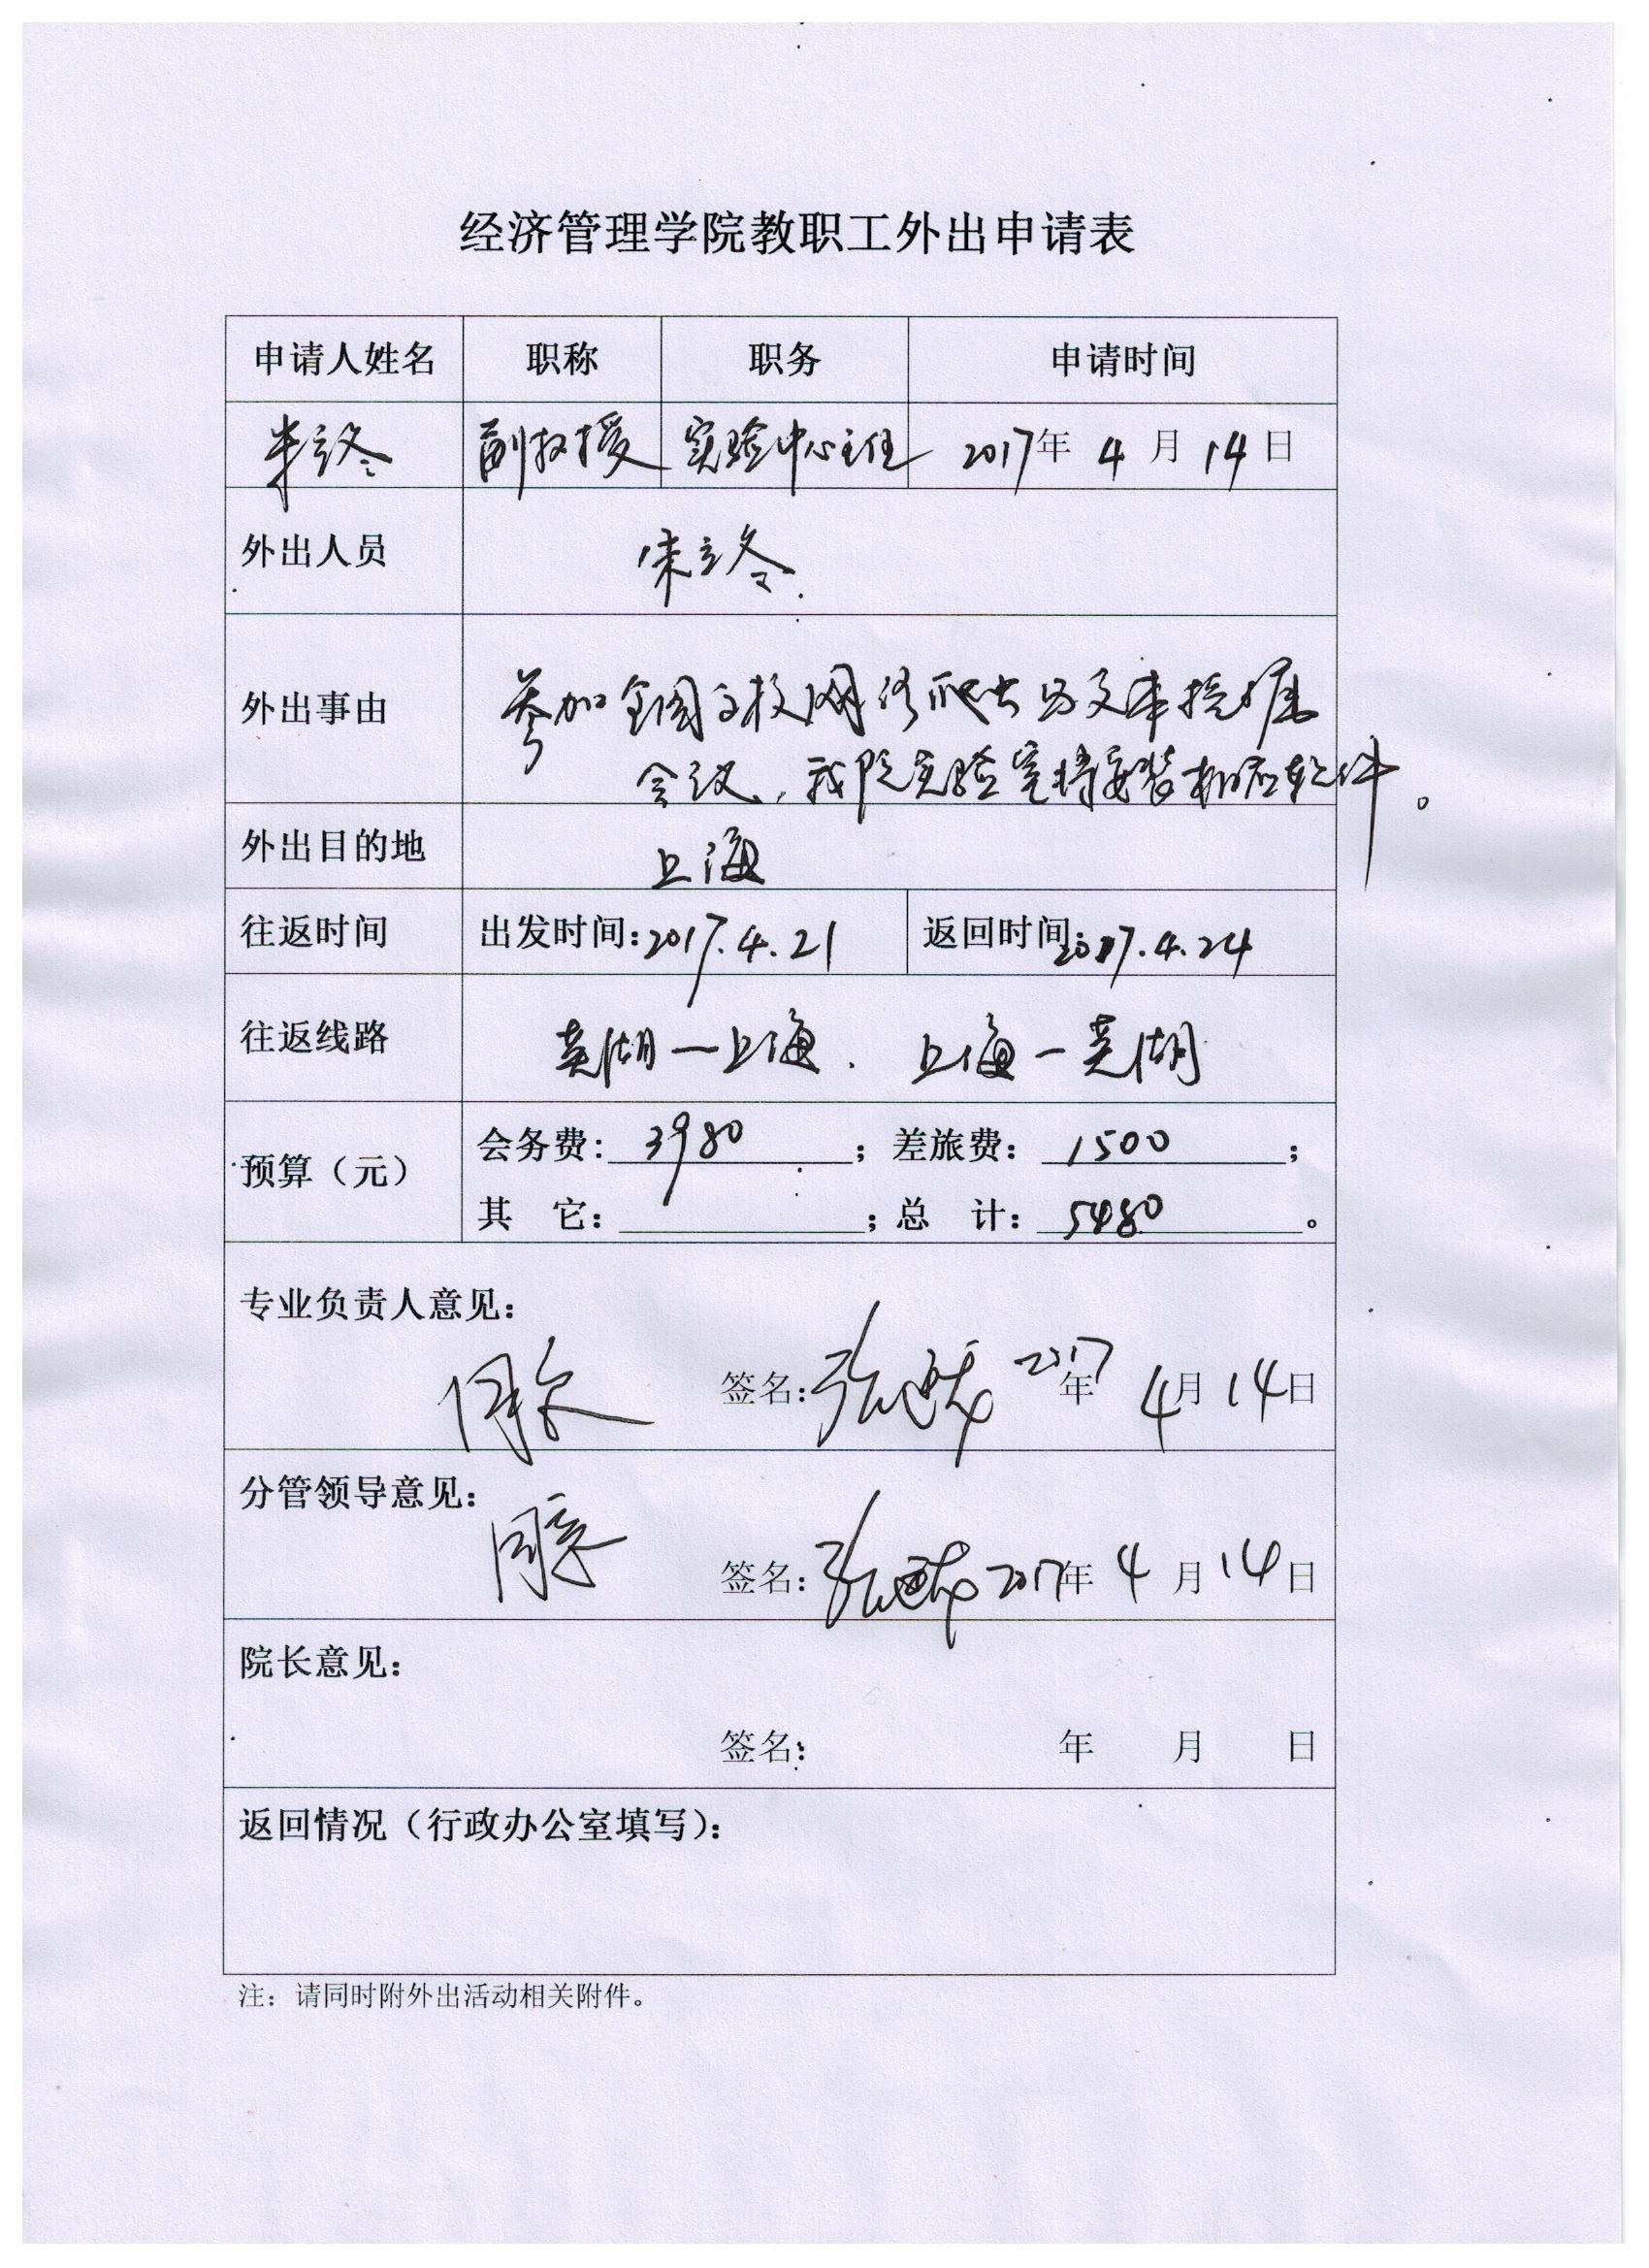 经济管理学院教职工外出申请表
申请人姓名 职称 职务 申请时间
朱立冬 副教授 实验中心主任 2017年 4 月 14 日
外出人员 朱立冬
外出事由 参加全国高校网络爬虫与文本挖掘
会议，我院实验室将安装相应软件。
外出目的地 上海
往返时间 出发时间：2017.4.21 返回时间：2017.4.24
往返线路 芜湖—上海. 上海—芜湖
预算（元） 会务费：3980；差旅费：1500；
其 它： ；总 计：5480。
专业负责人意见：
同意 签名：张 2017年 4月 14日
分管领导意见：
同意 签名：张 2017年 4 月 14日
院长意见：
签名： 年 月 日
返回情况（行政办公室填写）：
注：请同时附外出活动相关附件。